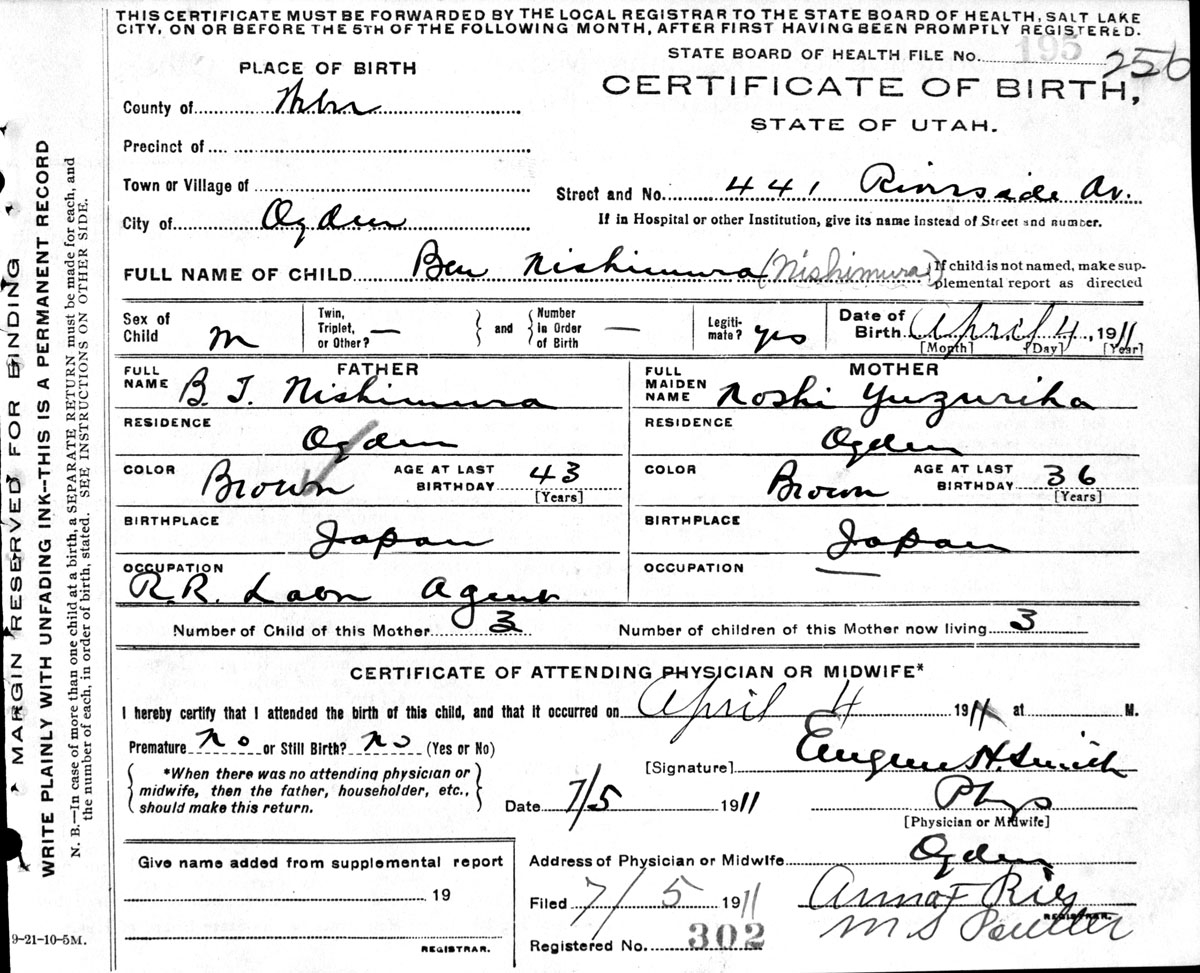 THIS CERTIFICATE MUST BE FORWARDED BY THE LOCAL REGISTRAR TO THE STATE BOARD OF HEALTH, SALT LAKE
CITY, ON OR BEFORE THE 5TH OF THE FOLLOWING MONTH, AFTER FIRST HAVING BEEN PROMPTLY REGISTERED.
STATE BOARD OF HEALTH FILE No. 195 256
PLACE OF BIRTH
CERTIFICATE OF BIRTH,
STATE OF UTAH.
County of
Precinct of
Town or Village of
Street and No. 441 Riverside Av.
City of Ogden
If in Hospital or other Institution, give its name instead of Street and number.
FULL NAME OF CHILD Ben Nishimura (Nishimura) {If child is not named, make sup-
plemental report as directed
Sex of Child M
Twin, Triplet, or Other? — and Number in Order of Birth —
Legiti-mate? yes
Date of Birth April 4, 1911
[Month] [Day] [Year]
FATHER
FULL NAME B. T. Nishimura
RESIDENCE
Ogden
COLOR Brown AGE AT LAST BIRTHDAY 43
[Years]
BIRTHPLACE
Japan
OCCUPATION
R.R. Agent
MOTHER
FULL MAIDEN NAME Noshi Yuzuriha
RESIDENCE
Ogden
COLOR Brown AGE AT LAST BIRTHDAY 36
[Years]
BIRTHPLACE
Japan
OCCUPATION —
Number of Child of this Mother 3 Number of children of this Mother now living 3
CERTIFICATE OF ATTENDING PHYSICIAN OR MIDWIFE*
I hereby certify that I attended the birth of this child, and that it occurred on April 4 1911 at M.
Premature No or Still Birth? No (Yes or No)
*When there was no attending physician or
midwife, then the father, householder, etc.,
should make this return.
[Signature] Eugene H. Smith
Date 7/5 1911 Phys
[Physician or Midwife]
Give name added from supplemental report
19
REGISTRAR.
Address of Physician or Midwife Ogden
Filed 7/5 1911 Anna F Ries
REGISTRAR.
Registered No. 302 M S
9-21-10-5M.
MARGIN RESERVED FOR BINDING
WRITE PLAINLY WITH UNFADING INK--THIS IS A PERMANENT RECORD
N. B.—In case of more than one child at a birth, a SEPARATE RETURN must be made for each, and
the number of each, in order of birth, stated. SEE INSTRUCTIONS ON OTHER SIDE.